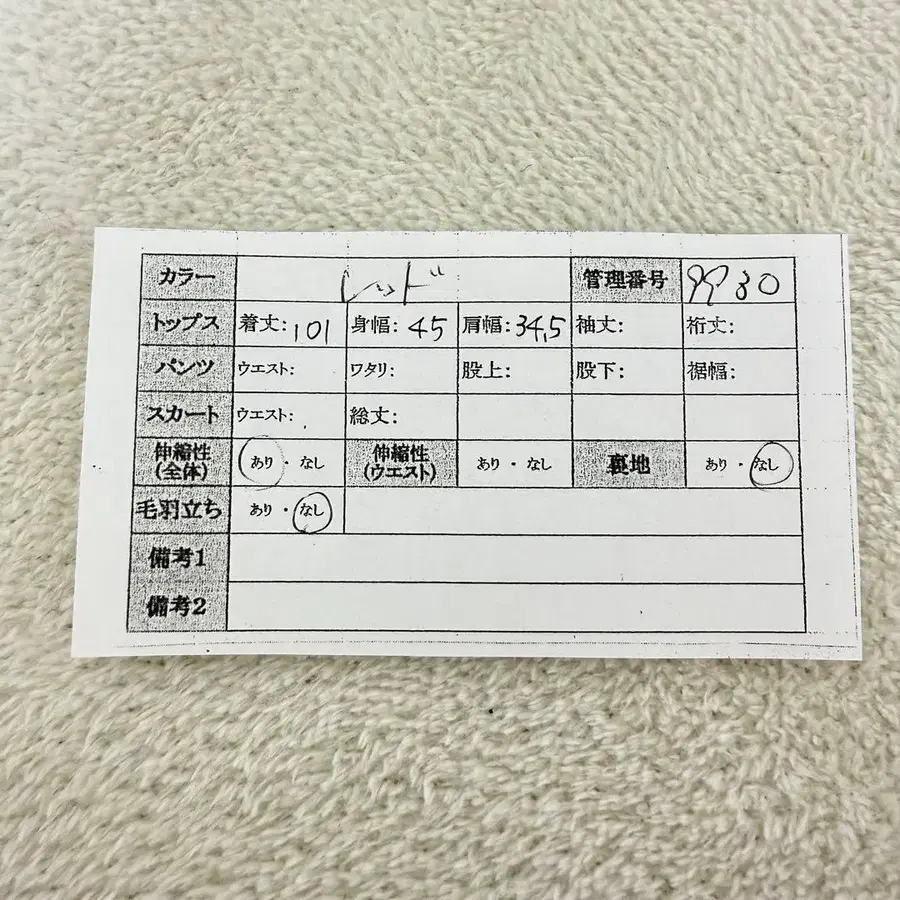 カラー レッド 管理番号 9930
トップス 着丈: 101 身幅: 45 肩幅: 34,5 袖丈: 裄丈:
パンツ ウエスト: ワタリ: 股上: 股下: 裾幅:
スカート ウエスト: 総丈:
伸縮性 (全体) あり・なし 伸縮性 (ウエスト) あり・なし 裏地 あり・なし
毛羽立ち あり・なし
備考1
備考2